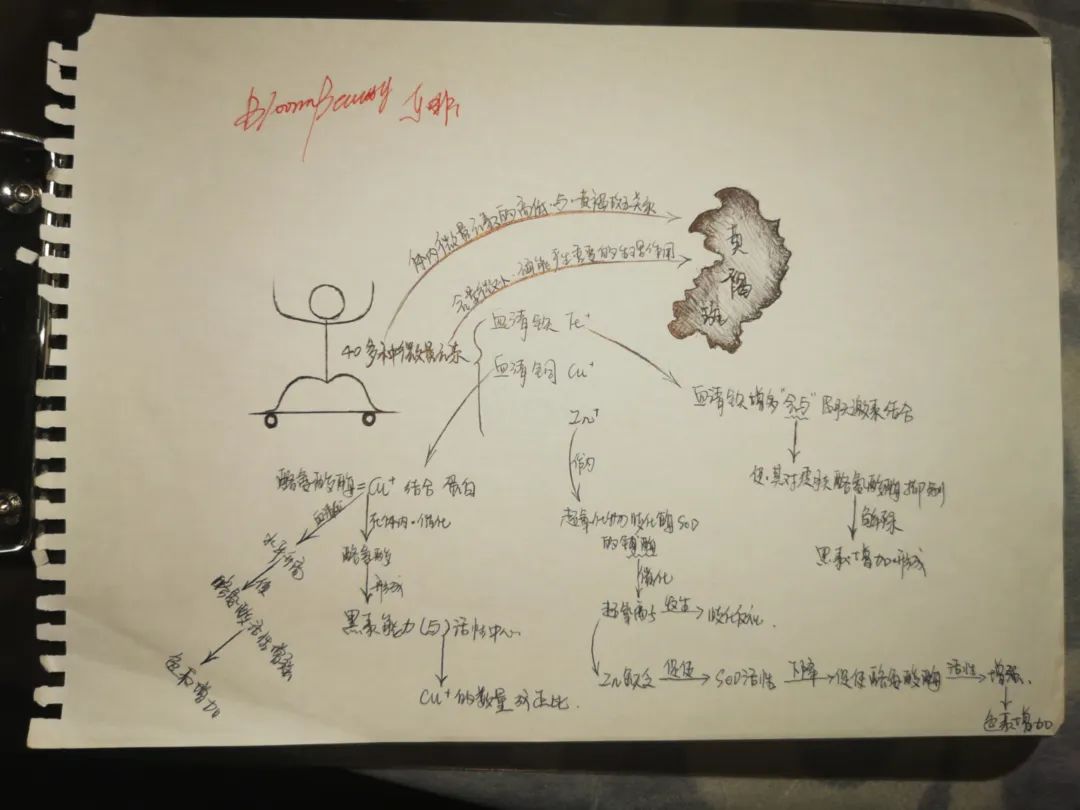 BloomBeauty
体内微量元素的高低·与·黄褐斑关系
含量微少·演能产生重要的生理作用
黄
褐
斑
40多种微量元素
血清铁 Fe⁺
血清铜 Cu⁺
Zn⁺
血清铁增多"参与"
激素结合
使·其对皮肤酪氨酸酶抑制
解除
黑素增加·形成
酪氨酸酶=Cu⁺结合 蛋白
血清铜
水平高
使
酪氨酸酶活性增强
色素增加
在体内·催化
酪氨酸
形成
黑素能力(与)活性中心.
Cu⁺的数量对正比.
体内
超氧化物歧化酶SOD
的辅酶
催化
超氧离子 发生 歧化反应.
Zn缺乏 促使 SOD活性 下降 促使酪氨酸酶 活性 增强.
色素增加